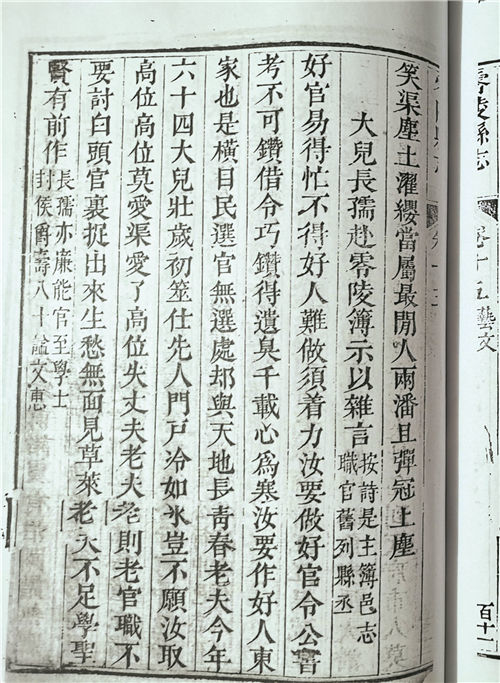 零陵縣志 卷十五藝文 百十一
笑渠塵土濯纓當屬最閒人兩潘且彈冠上塵
大兒長孺赴零陵簿示以雜言
按詩是主簿邑志
職官舊列縣丞
好官易得忙不得好人難做須着力汝要做好官令公書
考不可鑽借令巧鑽得遺臭千載心爲寒汝要作好人東
家也是橫目民選官無選處却與天地長青春老夫今年
六十四大兒壯歲初筮仕先人門戶冷如氷豈不願汝取
高位高位莫愛渠愛了高位失丈夫老夫老則老官職不
要討白頭官裏捉出來生愁無面見草萊老夫不足學聖
賢有前作
長孺亦廉能官至學士
封侯爵壽八十諡文惠